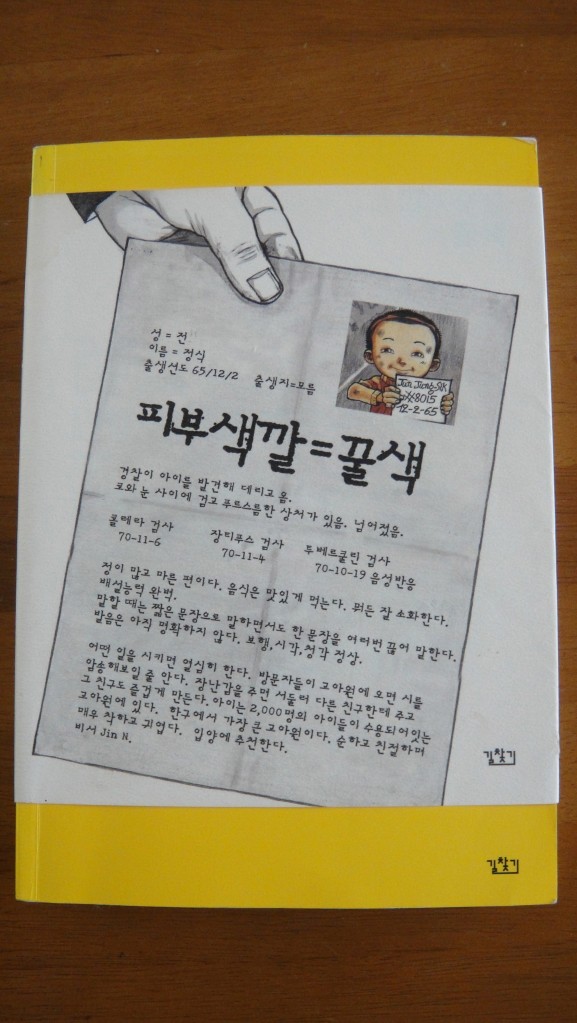 성 = 전
이름 = 정식
출생선도 65/12/2 출생지=모름
Jun Jung SiK
8015
12-2-65
피부색깔=꿀색
경찰이 아이를 발견해 데리고 옴.
코와 눈 사이에 검고 푸르스름한 상처가 있음. 넘어졌음.
콜레라 검사 장티푸스 검사 투베르쿨린 검사
70-11-6 70-11-4 70-10-19 음성반응
정이 많고 마른 편이다. 음식은 맛있게 먹는다. 뭐든 잘 소화한다.
배설능력 완벽.
말할 때는 짧은 문장으로 말하면서도 한 문장을 여러번 끊어 말한다.
발음은 아직 명확하지 않다. 보행, 시각, 청각 정상.
어떤 일을 시키면 열심히 한다. 방문자들이 고아원에 오면 시를
암송해보일 줄 안다. 장난감을 주면 서둘러 다른 친구한테 주고
그 친구도 즐겁게 만든다. 아이는 2,000명의 아이들이 수용되어잇는
고아원에 있다. 한구에서 가장 큰 고아원이다. 순하고 친절하며
매우 착하고 귀엽다. 입양에 추천한다.
비서 Jin N.
길찾기
길찾기